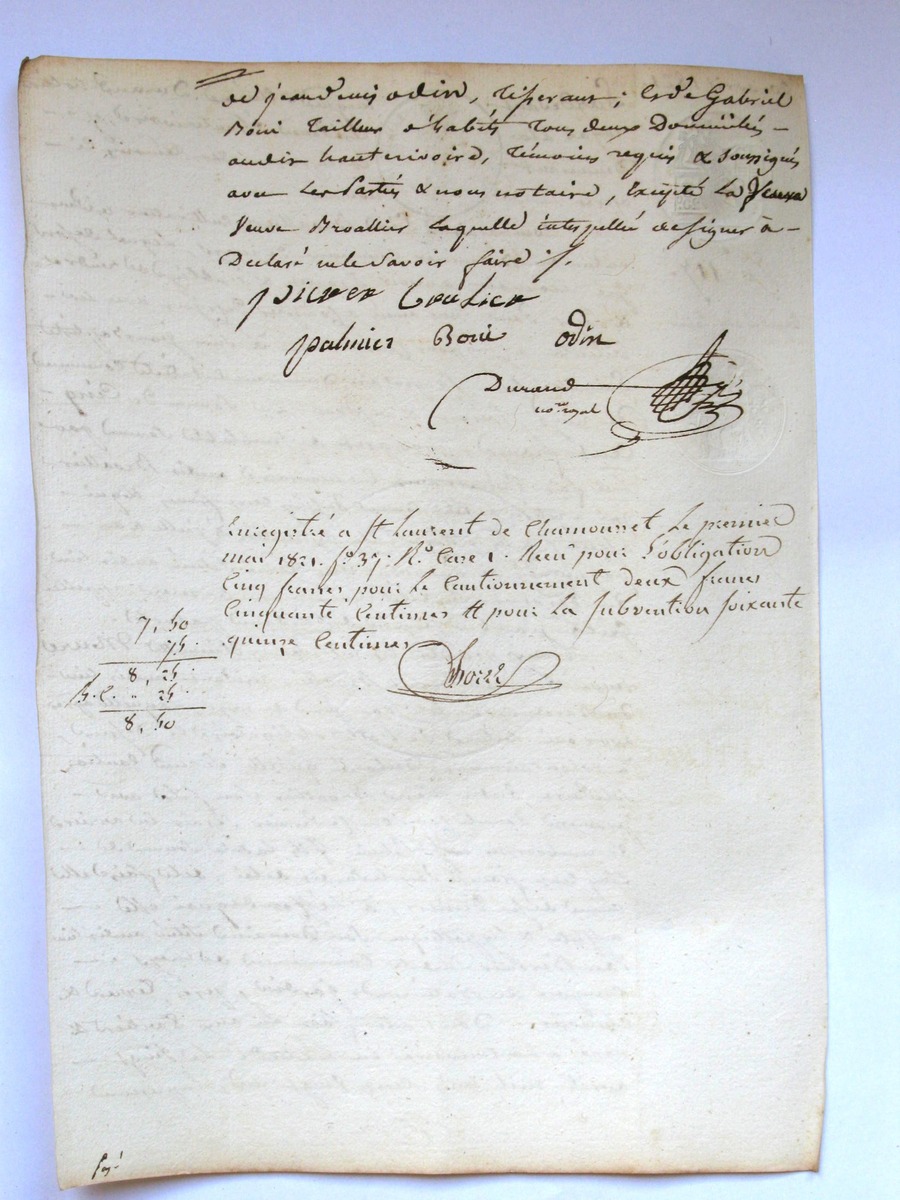 de jean denis odin, Tisserant; et de Gabriel
Boni Tailleur d'habits Tous deux Domiciliés
audit hauterivoire, témoins requis & soussignés
avec Les Parties & nous notaire, Excepté La
Veuve Broallier Laquelle interpellée de signer a
Declaré ne le Savoir faire /.
palmier Boni odin
Durand
no.re royal
Enregistré a St Laurent de Chamousset Le premier
mai 1821. fo. 37. R.o Case 1. Reçu pour L'obligation
Cinq francs pour Le Cautionnement deux francs
Cinquante Centimes et pour La Subvention Soixante
quinze Centimes
7, 50
75
8, 25
" 25
8, 50